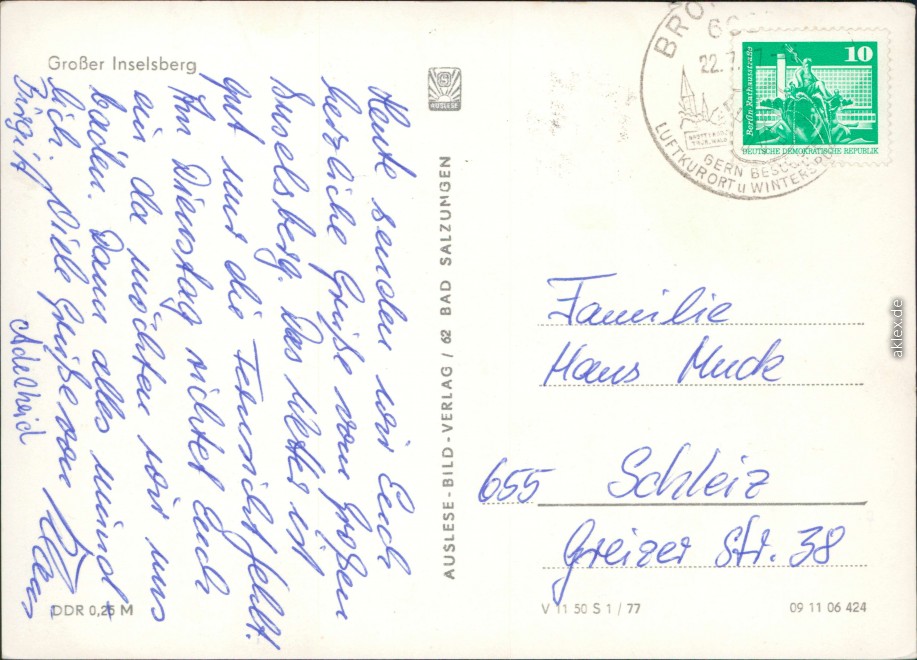 Großer Inselsberg
Heute senden wir Euch
herzliche Grüße vom Großen
Inselsberg. Das Wetter ist
gut nur die Fernsicht fehlt.
Ihr Dienstag richtet Euch
ein da möchten wir uns
baden. Dann alles münd-
lich. Viele Grüße von Klaus
Birgit
Adelheid
DDR 0,25 M
AUSLESE
AUSLESE-BILD-VERLAG / 62 BAD SALZUNGEN
BRO
22.7.
GERN BESUCH
LUFTKURORT u WINTERS
10
Berlin, Rathausstraße
DEUTSCHE DEMOKRATISCHE REPUBLIK
Familie
Hans Muck
655 Schleiz
Greizer Str. 38
V 11 50 S 1 / 77
09 11 06 424
aklex.de